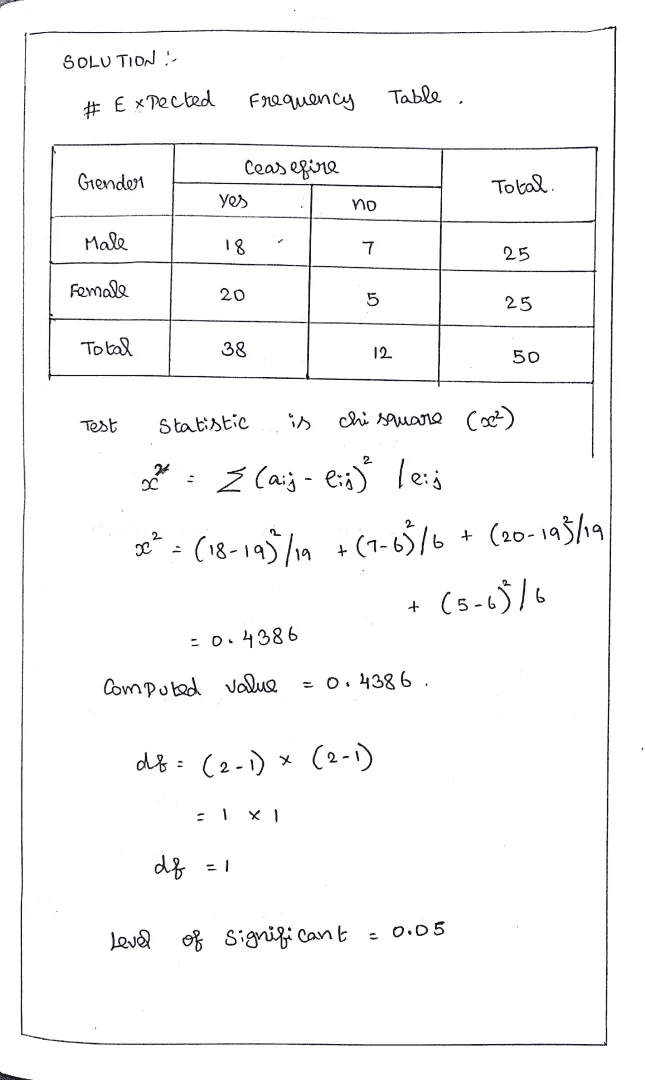 SOLUTION :-
# Expected Frequency Table .
Gender Ceasefire Total.
yes no
Male 18 7 25
Female 20 5 25
Total 38 12 50
Test Statistic is chi square (x²)
x² = Σ (aij - eij)² / eij
x² = (18-19)²/19 + (7-6)²/6 + (20-19)²/19
+ (5-6)²/6
= 0.4386
Computed value = 0.4386 .
df = (2-1) × (2-1)
= 1 × 1
df = 1
Level of significant = 0.05